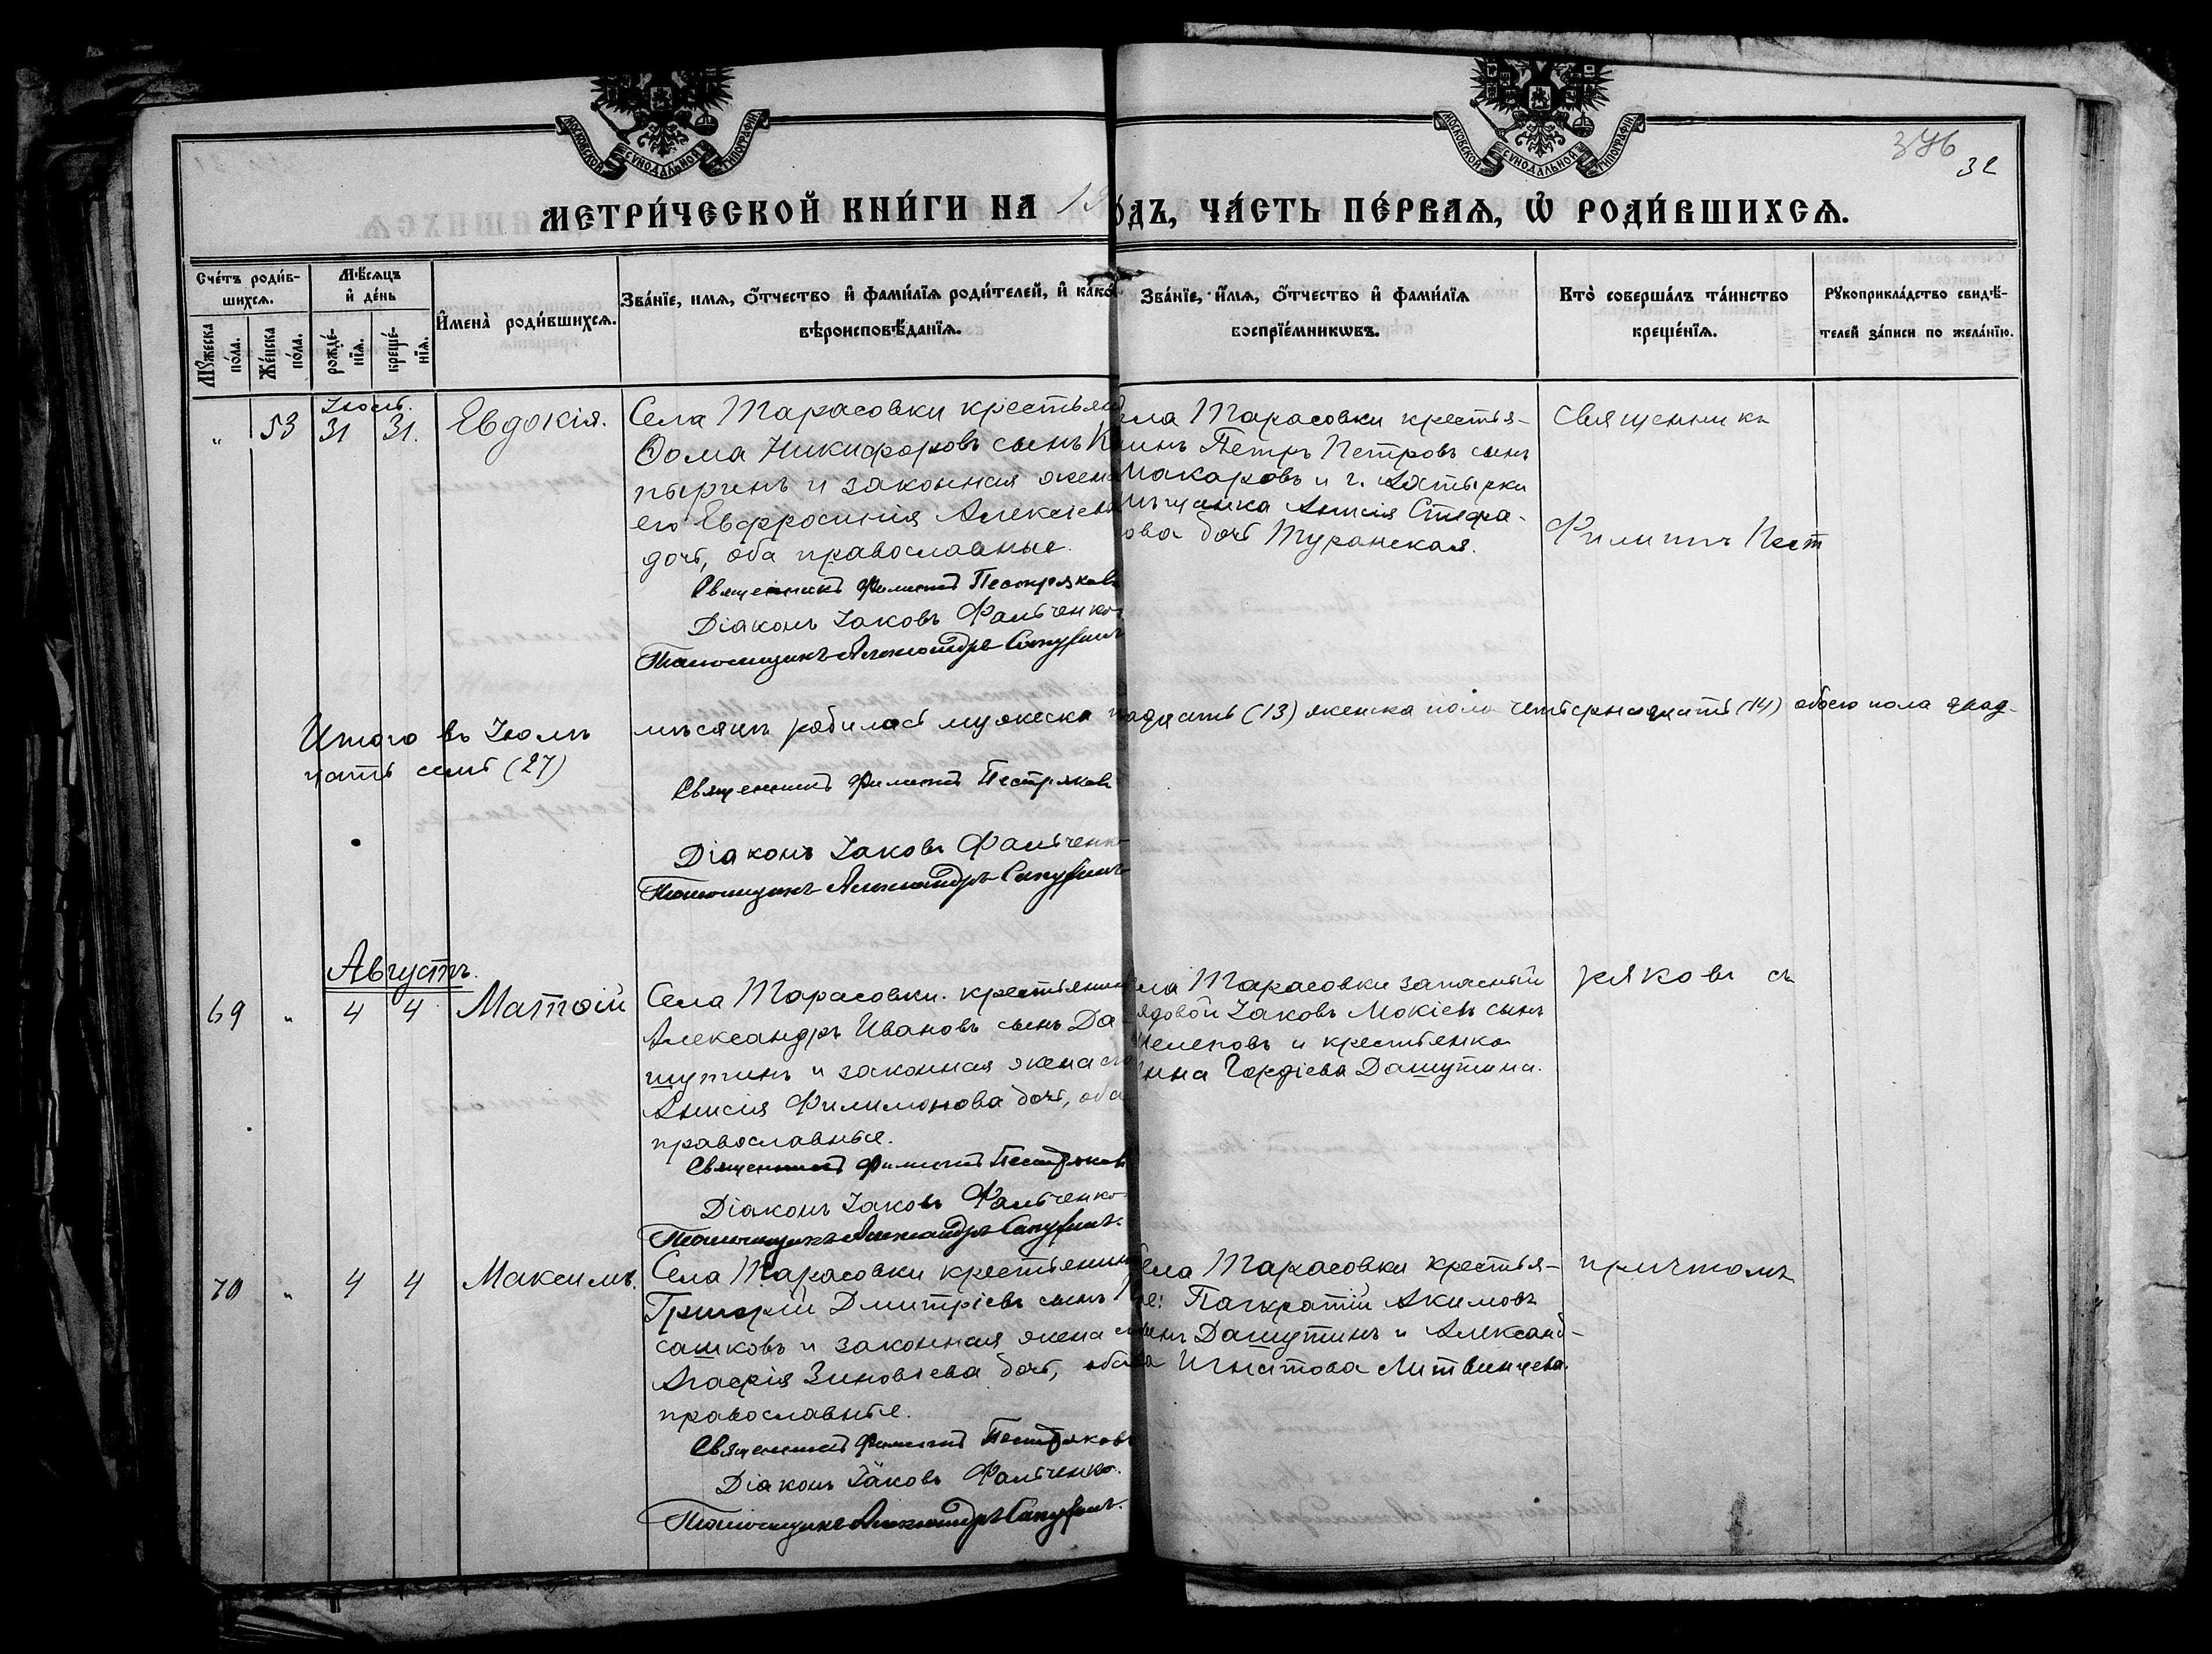 МОСКОВСКОЙ СѴНОДАЛЬНОЙ ТИПОГРАФІИ
МОСКОВСКОЙ СѴНОДАЛЬНОЙ ТИПОГРАФІИ
376
32
МЕТРИ́ЧЕСКОЙ КНИ́ГИ НА 19
ОДЪ, ЧА́СТЬ ПЕ́РВАЯ, Ѡ РОДИ́ВШИХСѦ.
Сче́тъ роди́в-
шихсѧ.
Мѹжеска по́ла.
Же́нска по́ла.
Мѣ́сѧцъ
и҆ де́нь
рожде́-
нїѧ.
креще́-
нїѧ.
И҆мена̀ роди́вшихсѧ.
Зва́нїе, имѧ, ѻ҆́тчество и҆ фами́лїѧ роди́телей, и҆ како́
вѣроисповѣ́данїѧ.
Зва́нїе, и҆́мѧ, ѻ҆́тчество и҆ фами́лїѧ
воспрїе́мникѡвъ.
Кто̀ соверша́лъ та́инство
креще́нїѧ.
Рꙋкоприкла́дство свидѣ́-
телей за́писи по жела́нїю.
„ 53 31 31. Евдокія.
Села Тарасовки крестьян
Ѳома Никифоровъ сынъ
пыринъ и законная жена
его Евфросинія Алексіева
дочь, оба православные.
Священникъ Филиппъ Пестряковъ
Діаконъ Іаковъ Фальченко
Псаломщикъ Александръ
ела Тарасовки крестья-
нинъ Петръ Петровъ сынъ
Макаровъ и г. Ахтырки
мѣщанка Анисія Стефа-
нова дочь Туранская.
Священникъ
Филиппъ Пест
Итого въ Іюлѣ мѣсяцѣ родилось мужеска надцать (13) женска пола четырнадцать (14) обоего пола двад-
цать семь (27)
Священникъ Филиппъ Пестряковъ
Діаконъ Іаковъ Фальченко
Псаломщикъ Александръ
Августъ.
69 „ 4 4 Матѳій
Села Тарасовки. крестьянинъ
Александръ Ивановъ сынъ Да
шутинъ и законная жена его
Анисія Филимонова дочь, оба
православные.
Священникъ Филиппъ Пестряковъ
Діаконъ Іаковъ Фальченко
Псаломщикъ Александръ
ла Тарасовки запасный
ядовой Іаковъ Мокіевъ сынъ
Шелеповъ и крестьянка
Анна Гордіева Дашутина.
ряковъ съ
70 „ 4 4 Максимъ.
Села Тарасовки крестьянинъ
Григорій Дмитріевъ сынъ
сашковъ и законная жена его
Агафія Зиновіева дочь, оба
православные.
Священникъ Филиппъ Пестряковъ
Діаконъ Іаковъ Фальченко.
Псаломщикъ Александръ
Села Тарасовки крестья-
не: Панкратій Акимовъ
сынъ Дашутинъ и Александ-
ра Игнатова Литвинцева.
причтомъ